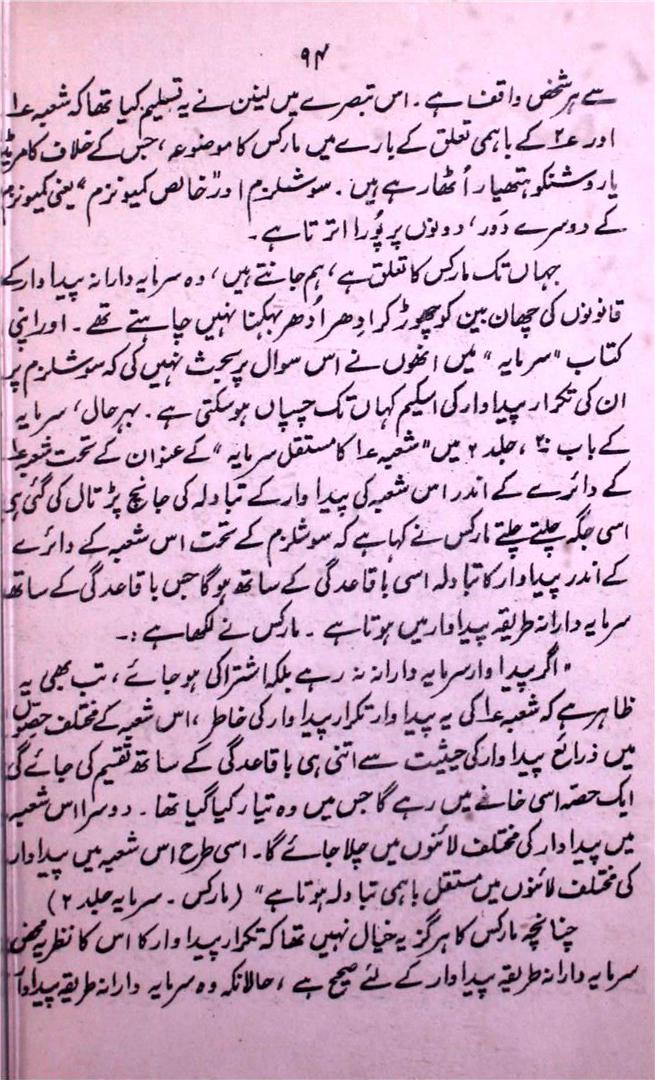 ۹۴
سے ہر شخص واقف ہے۔ اس تبصرے میں لینن نے یہ تسلیم کیا تھا کہ شعبہ ۱
اور ۲ کے باہمی تعلق کے بارے میں مارکس کا موضوعہ، جس کے خلاف کامریڈ
یاروشنکو ہتھیار اُٹھا رہے ہیں۔ سوشلزم اور "خالص کمیونزم" یعنی کمیونزم
کے دوسرے دَور، دونوں پر پُورا اترتا ہے۔
جہاں تک مارکس کا تعلق ہے، ہم جانتے ہیں، وہ سرمایہ دارانہ پیداوار کے
قانونوں کی چھان بین کو چھوڑ کر اِدھر اُدھر بہکنا نہیں چاہتے تھے۔ اور اپنی
کتاب "سرمایہ" میں انھوں نے اس سوال پر بحث نہیں کی کہ سوشلزم پر
ان کی تکرار پیداوار کی اسکیم کہاں تک چسپاں ہو سکتی ہے۔ بہر حال، سرمایہ
کے باب ۲۰، جلد ۲ میں "شعبہ ۱ کا مستقل سرمایہ" کے عنوان کے تحت شعبہ ۱
کے دائرے کے اندر اس شعبہ کی پیداوار کے تبادلہ کی جانچ پڑتال کی گئی ہے
اسی جگہ چلتے چلتے مارکس نے کہا ہے کہ سوشلزم کے تحت اس شعبہ کے دائرے
کے اندر پیداوار کا تبادلہ اسی باقاعدگی کے ساتھ ہوگا جس باقاعدگی کے ساتھ
سرمایہ دارانہ طریقہ پیداوار میں ہوتا ہے۔ مارکس نے لکھا ہے :۔
"اگر پیداوار سرمایہ دارانہ نہ رہے بلکہ اشتراکی ہو جائے، تب بھی یہ
ظاہر ہے کہ شعبہ ۱ کی یہ پیداوار تکرار پیداوار کی خاطر، اس شعبہ کے مختلف حصوں
میں ذرائع پیداوار کی حیثیت سے اتنی ہی باقاعدگی کے ساتھ تقسیم کی جائے گی
ایک حصّہ اسی خانے میں رہے گا جس میں وہ تیار کیا گیا تھا۔ دوسرا اس شعبہ
میں پیداوار کی مختلف لائنوں میں چلا جائے گا۔ اسی طرح اس شعبہ میں پیداوار
کی مختلف لائنوں میں مستقل باہمی تبادلہ ہوتا ہے" (مارکس۔ سرمایہ جلد ۲)
چنانچہ مارکس کا ہرگز یہ خیال نہیں تھا کہ تکرار پیداوار کا اس کا نظریہ محض
سرمایہ دارانہ طریقہ پیداوار کے لئے صحیح ہے، حالانکہ وہ سرمایہ دارانہ طریقہ پیداوار